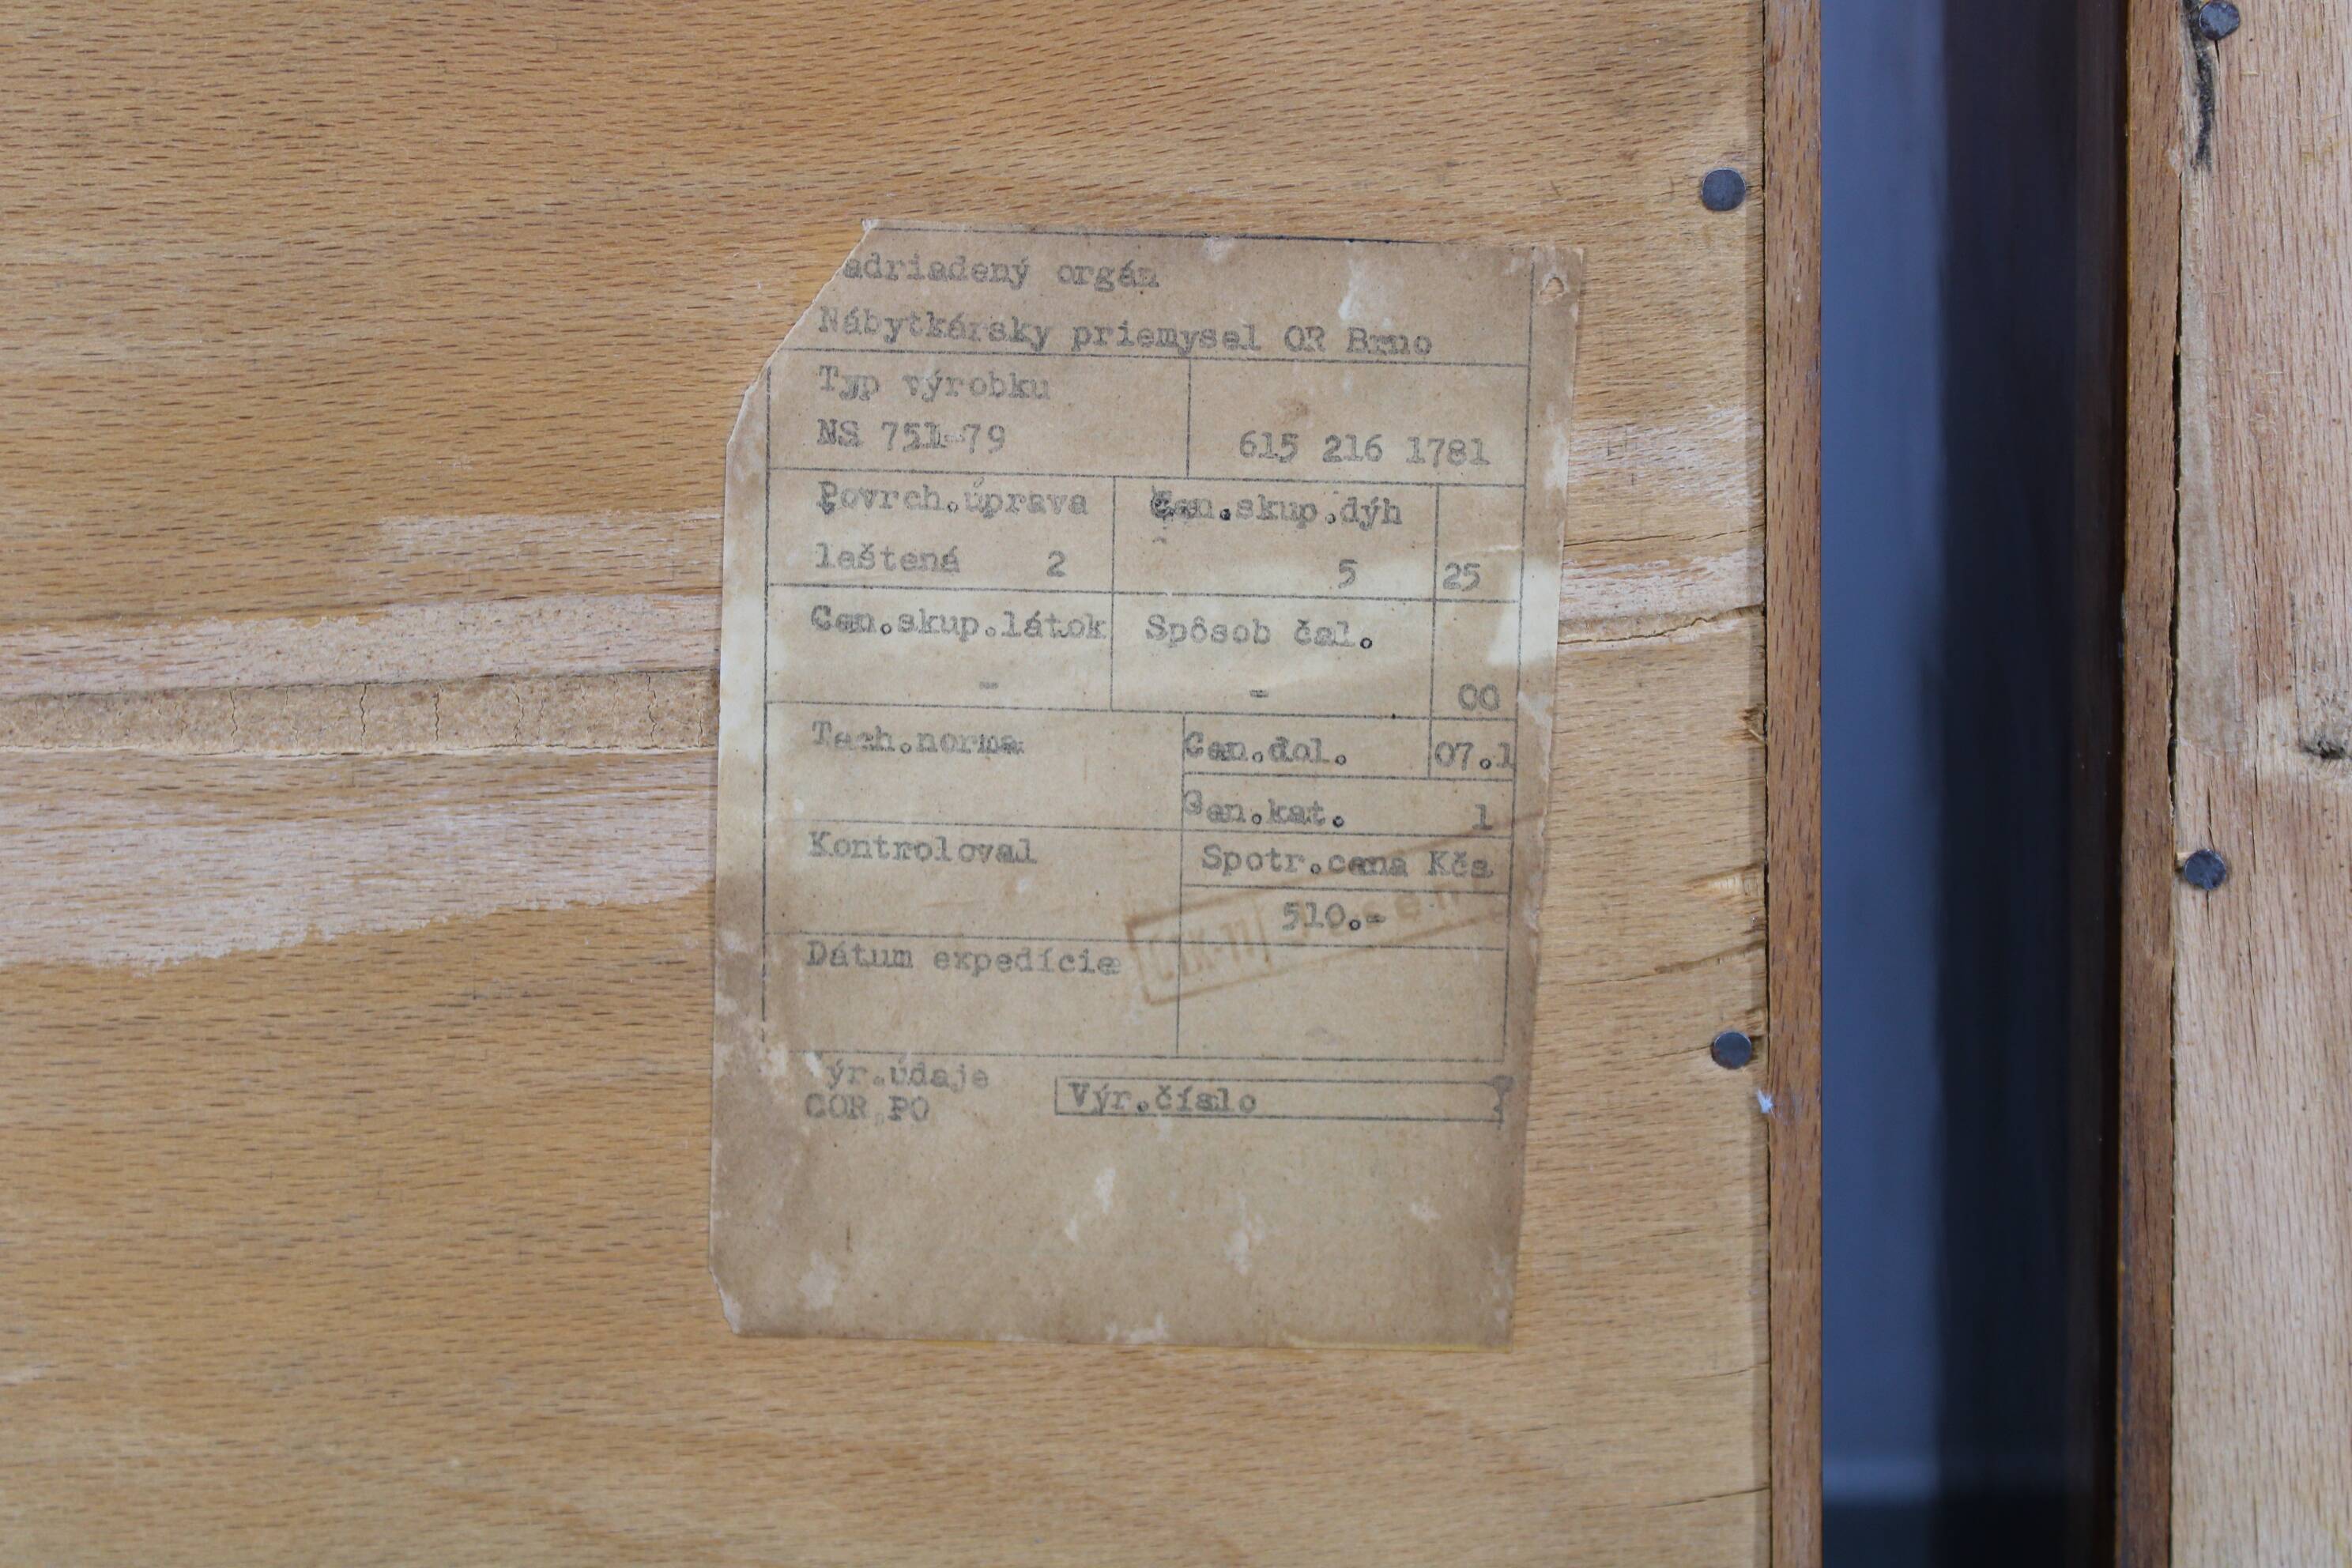 adriadený orgán
Nábytkársky priemysel OR Brno
Typ výrobku
NS 751-79 615 216 1781
Povrch.úprava Cen.skup.dýh
leštená 2 5 25
Cen.skup.látok Spôsob čal.
- - 00
Tech.norma Cen.dol. 07.1
Cen.kat. 1
Kontroloval Spotr.cena Kčs
510.-
Dátum expedície
ýr.údaje
COR PO Výr.číslo